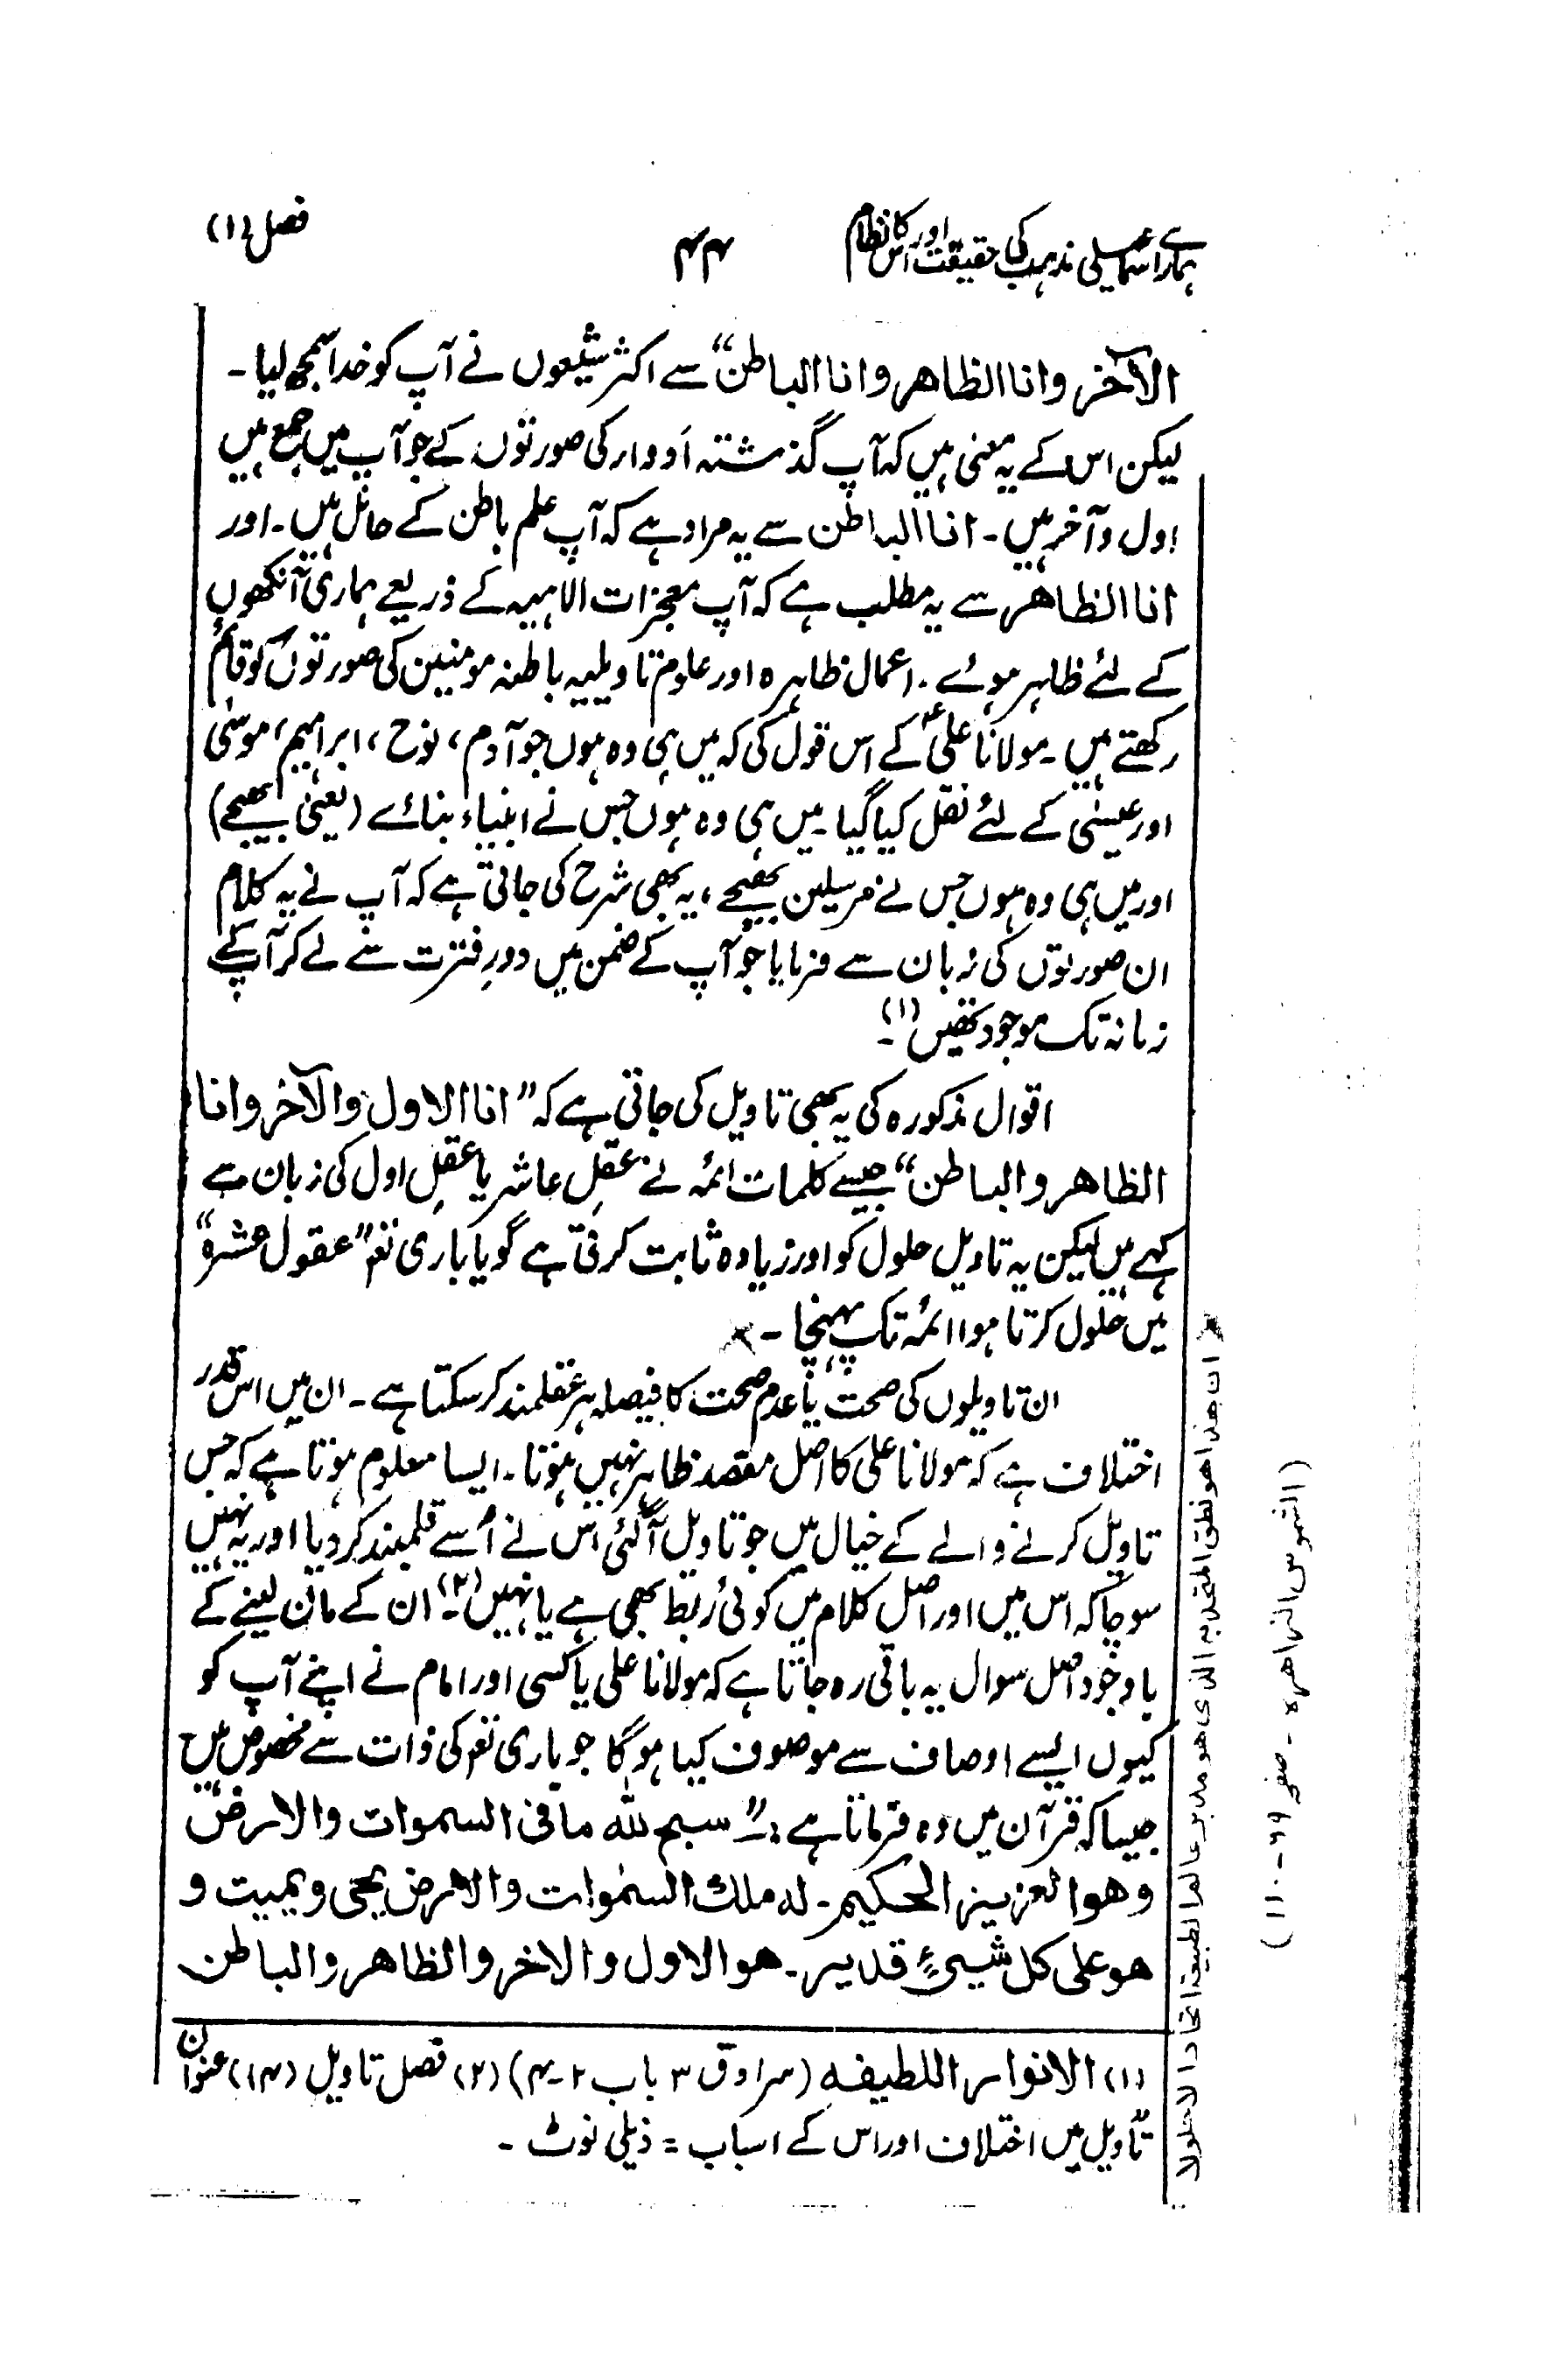 ہمارے اسماعیلی مذہب کی حقیقت اور اس کا نظام
۴۴
فصل (۱)
الآخر وانا الظاهر وانا الباطن“ سے اکثر شیعوں نے آپ کو خدا سمجھ لیا۔
لیکن اس کے یہ معنی ہیں کہ آپ گذشتہ اَدوار کی صورتوں کے جو آپ میں جمع ہیں
اول و آخر ہیں۔ انا الباطن سے یہ مراد ہے کہ آپ علم باطن کے حامل ہیں۔ اور
انا الظاهر سے یہ مطلب ہے کہ آپ معجزات الاہیہ کے ذریعے ہماری آنکھوں
کے لئے ظاہر ہوئے۔ اعمال ظاہرہ اور علوم تاویلیہ باطنہ مومنین کی صورتوں کو قائم
رکھتے ہیں۔ مولانا علیؑ کے اس قول کی کہ میں ہی وہ ہوں جو آدم، نوح، ابراہیم، موسیٰ
اور عیسٰی کے لئے نقل کیا گیا۔ میں ہی وہ ہوں جس نے انبیاء بنائے (یعنی بھیجے)
اور میں ہی وہ ہوں جس نے مرسلین بھیجے، یہ بھی شرح کی جاتی ہے کہ آپ نے یہ کلام
ان صورتوں کی زبان سے فرمایا جو آپ کے ضمن میں دورِ فترت سے لے کر آپ کے
زمانہ تک موجود تھیں (۱)۔
اقوال مذکورہ کی یہ بھی تاویل کی جاتی ہے کہ ”انا الاول والآخر وانا
الظاهر والباطن“ جیسے کلمات ائمہ نے عقلِ عاشر یا عقلِ اول کی زبان سے
کہے ہیں لیکن یہ تاویل حلول کو اور زیادہ ثابت کرتی ہے گویا باری تعہ ”عقول عشرہ“
میں حلول کرتا ہوا ائمہ تک پہنچا۔ ×
ان تاویلوں کی صحت یا عدم صحت کا فیصلہ ہر عقلمند کر سکتا ہے۔ ان میں اس قدر
اختلاف ہے کہ مولانا علی کا اصل مقصد ظاہر نہیں ہوتا۔ ایسا معلوم ہوتا ہے کہ جس
تاویل کرنے والے کے خیال میں جو تاویل آگئی اس نے اُسے قلمبند کر دیا اور یہ نہیں
سوچا کہ اس میں اور اصل کلام میں کوئی ربط بھی ہے یا نہیں (۲)۔ ان کے مان لینے کے
باوجود اصل سوال یہ باقی رہ جاتا ہے کہ مولانا علی یا کسی اور امام نے اپنے آپ کو
کیوں ایسے اوصاف سے موصوف کیا ہوگا جو باری تعہ کی ذات سے مخصوص ہیں
جیسا کہ قرآن میں وہ فرماتا ہے :۔ ”سبح لله ما فی السموات والارض
وهوا لعزیز الحکیم۔ له ملك السمٰوات والارض یحی ویمیت و
هو علی کل شیئٍ قدیر۔ هو الاول والاخر والظاهر والباطن
(۱) الانوار اللطیفه (سرادق ۳ باب ۲-۴) (۲) فصل تاویل (۱۴) عنوان
تاویل میں اختلاف اور اس کے اسباب = ذیلی نوٹ۔
× ان هذا هو نطق المتحد به الذی هو مدبر عالم الطبیعة اتحادا لا حلولا
(الشموس الزاهره - صفحہ ۶۹-۱۱۰)